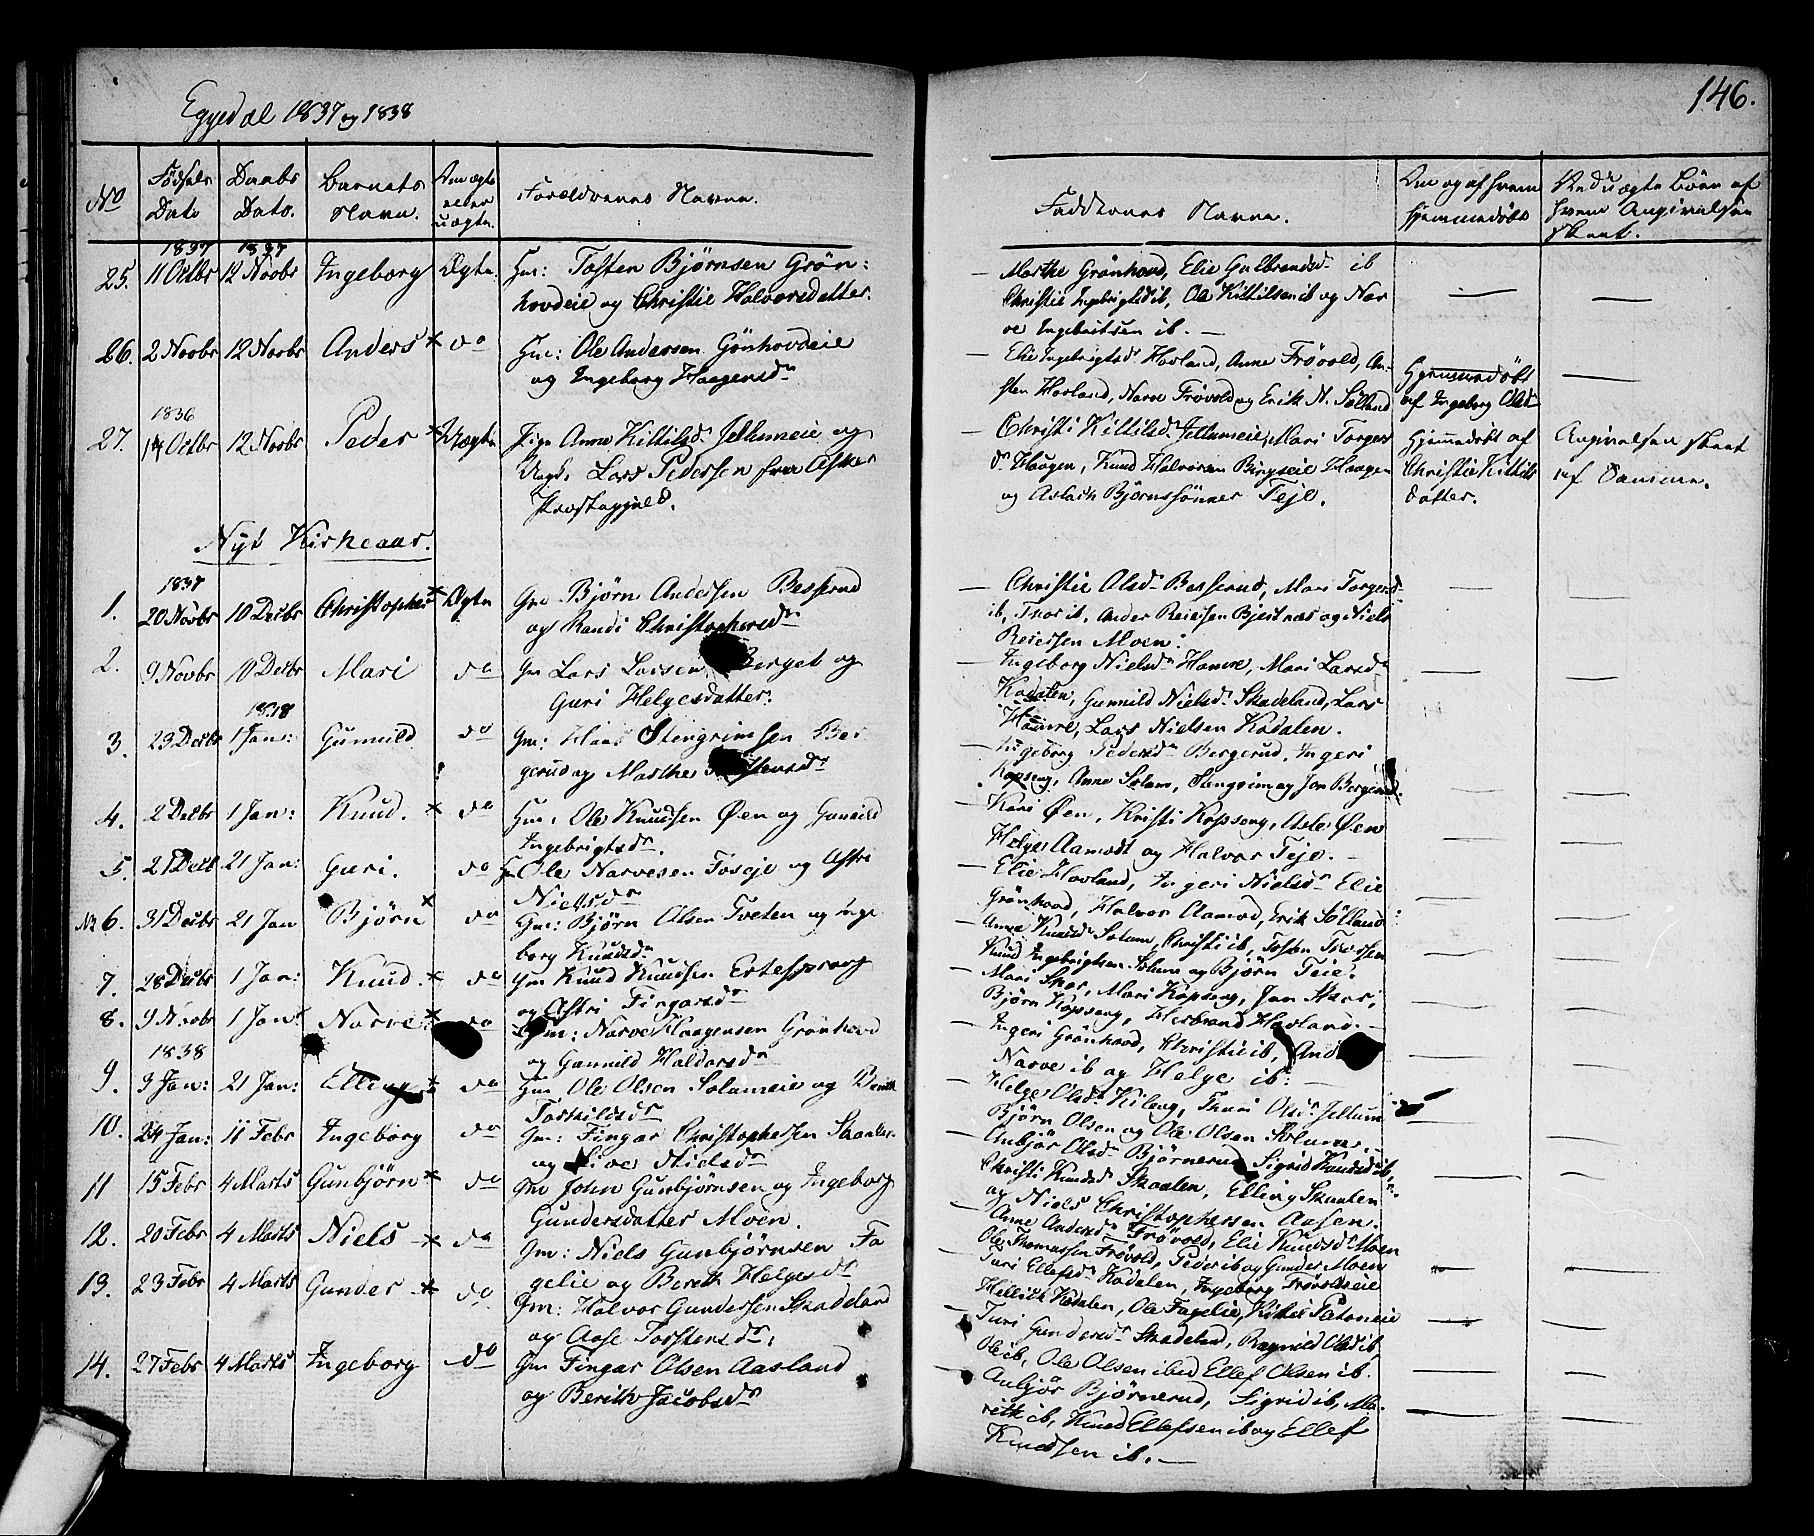 Eggedal 1837 og 1838
146.
No Fødsels Dato Daabs Dato. Barnets Navn. Om ægte eller uægte. Forældrenes Navne. Faddernes Navne. Om og af hvem hjemmedøbt Ved uægte Børn af hvem Angivelsen skeet.
1837 1837
25. 11 Octbr 12 Novbr Ingeborg Ægte Gm: Tosten Bjørnsen Grøn-
hovdeie og Christie Halvorsdatter.
— Marthe Grønhovd, Elie Gulbrandsd ib
Christie Ingebrigtsd ib, Ole Kittilsen ib og Nar
ve Ingebritsen ib. —
26. 2 Novbr 12 Novbr Anders × do Gm: Ole Andersen Gönhovdeie
og Ingeborg Haagensdr
— Elie Ingebrigtsdr Hovland, Anne Frövold, An-
sten Hovland, Narve Frövold og Erik N. Sölland
Hjemmedöbt
af Ingeborg Olsd
1836
27. 14 Octbr 12 Novbr Peder × Uægte Pige Anne Kittilsd Jellumeie og
Ungk. Lars Pedersen fra Asker
Præstegjeld.
Christi Kittilsd. Jellumeie, Mari Torgers
dr Haagen, Knud Halvorsen Bingseie Haagen
og Aslach Björnssönner Teje.
Hjemmedøbt af
Christie Kittils
datter.
Angivelsen skeet
af Samme.
Nyt Kirkeaar.
1837
1. 20 Novbr 10 Decbr Christopher × Ægte Gm Bjørn Andersen Besserud
og Randi Christophersdr
— Christie Olsdr Besserud, Mari Torgersd
ib, Thor ib, Ander Reiersen Bjertnæs og Niels
Reiersen Moen.
2. 9 Novbr 10 Decbr Mari do Gm Lars Larsen Berget og
Guri Helgesdatter.
— Ingeborg Nielsdr Hamre, Mari Larsdr
Kodalen, Gunnild Nielsdr Skadeland, Lars
Hamre, Lars Nielsen Kodalen.
1838
3. 29 Decbr 1 Jan: Gunnild do Gm: Hans Stengrimsen Ber
gerud og Marthe
— Ingeborg Pedersdr Bergerud, Ingeri
Kopseng, Anne Solem, Stengrim og Jon Bergerud.
4. 2 Decbr 1 Jan: Knud. × do Gm: Ole Knudsen Øen og Gunnild
Ingebrigtsdr.
— Kari Øen, Kristi Kopseng, Asle Øen
Helge Aamodt og Halvor Teje. —
5. 21 Decb 21 Jan: Guri. do Gm Ole Narvesen Foseje og Astri
Nielsdr
— Elie Hovland, Ingeri Nielsdr Elie
Grönhovd, Halvor Aamod, Erik Sölland
6. 31 Decbr 21 Jan Bjørn × do Gm: Bjørn Olsen Tveten og Inge
borg Knudsd.
— Anne Knudsdr Solum, Christi ib, Tosten Thorsen
Knud Ingebrigtsen Solum og Björn Teie.
7. 28 Decbr 1 Jan: Knud × do Gm Knud Knudsen Ertesprang
og Astri Fingarsdr
— Mari Skar, Mari Kopseng, Jon Skar,
Björn Kopseng, Herbrand Hovland. —
8. 9 Novbr 1 Jan: Narve × do Gm: Narve Haagensen Grönhovd
og Gunnild Haldorsdr
— Ingeri Grönhovd, Christie ib, And
Narve ib og Helge ib: —
1838
9. 3 Jan: 21 Jan: Elling × do Gm Ole Olsen Solumeie og Berith
Torkildsdr
— Helge Olsdr Kileng, Thuri Olsdr Jellum
Björn Olsen og Ole Olsen Solum.
10. 24 Jan: 11 Febr Ingeborg do Gm: Fingar Christophersen Skaalen
og Live Nielsdr
— Anbjör Olsdr Björnerud, Sigrid Knudsd ib,
Christi Knudsd Skaalen, Elling Skaalen
og Niels Christophersen Aasen.
11 15 Febr 4 Marts Gunbjörn × do Gm John Gunbjörnsen og Ingeborg
Gundersdatter Moen.
— Anne Andersdr Frövold, Elie Knudsdr Moen
Ole Thomassen Frövold, Peder ib og Gunder Moen
12. 20 Febr 4 Marts Niels × do Gm: Niels Gunbjörnsen Fa
gelie og Berith Helgesdr
Turi Ellefsdr Kodalen, Ingeborg Frövoldseie
Hellith Kodalen, Ole Fagelie, Kittil
13. 23 Febr 4 Marts Gunder × do Gm: Halvor Gundersen Skadeland
og Aase Torstensdr.
— Turi Gundersdr Skadeland, Ragnild Olsd ib,
Ole ib, Ole Olsen ib ed Ellef Olsen ib.
14. 27 Febr 4 Marts Ingeborg do Gm Fingar Olsen Aasland
og Berith Jacobsdr
— Anbjör Björnerud, Sigrid ib, Ma-
rith ib, Knud Ellefsen ib og Ellef
Knudsen ib. —